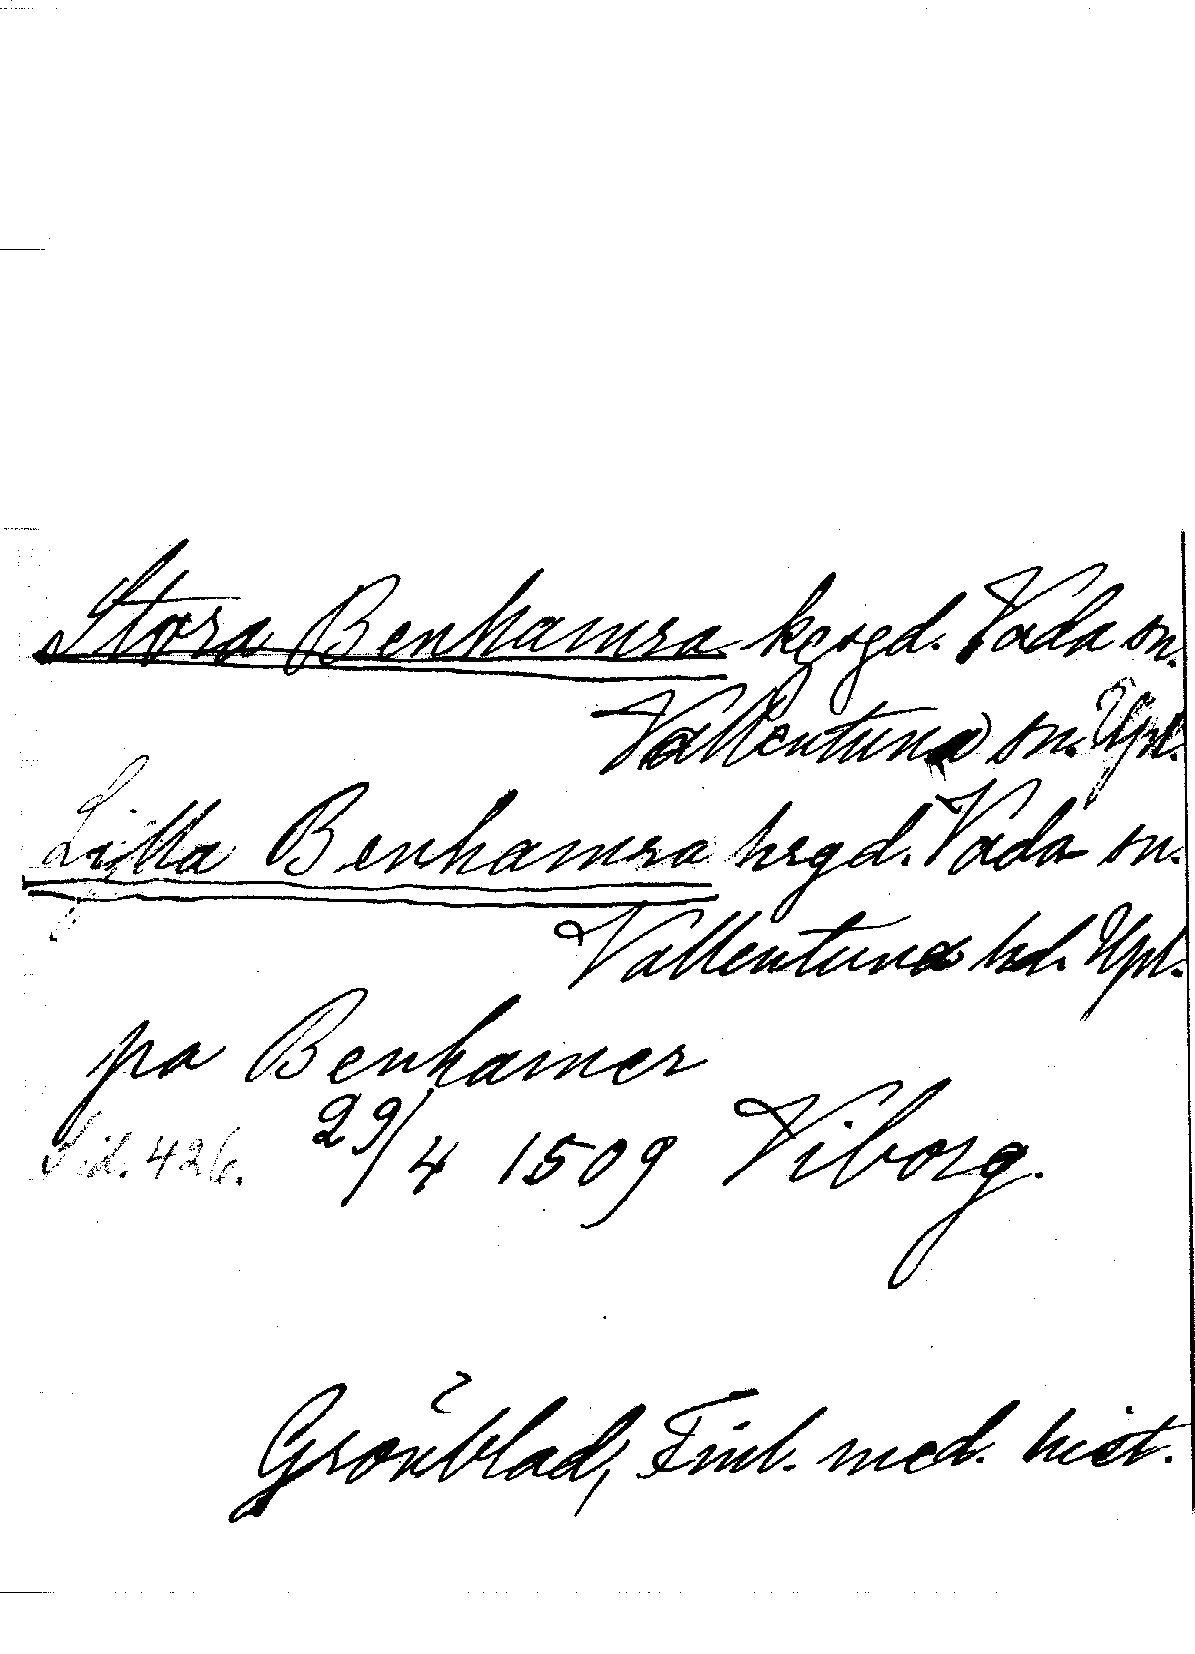 Stora Benhamra hrgd. Vada sn.
Vallentuna sn. Upl.
Lilla Benhamra hrgd. Vada sn.
Vallentuna hd. Upl.
pa Benhamer
Sid. 426. 29/4 1509 Viborg.
Grönblad, Finl. med. hist.